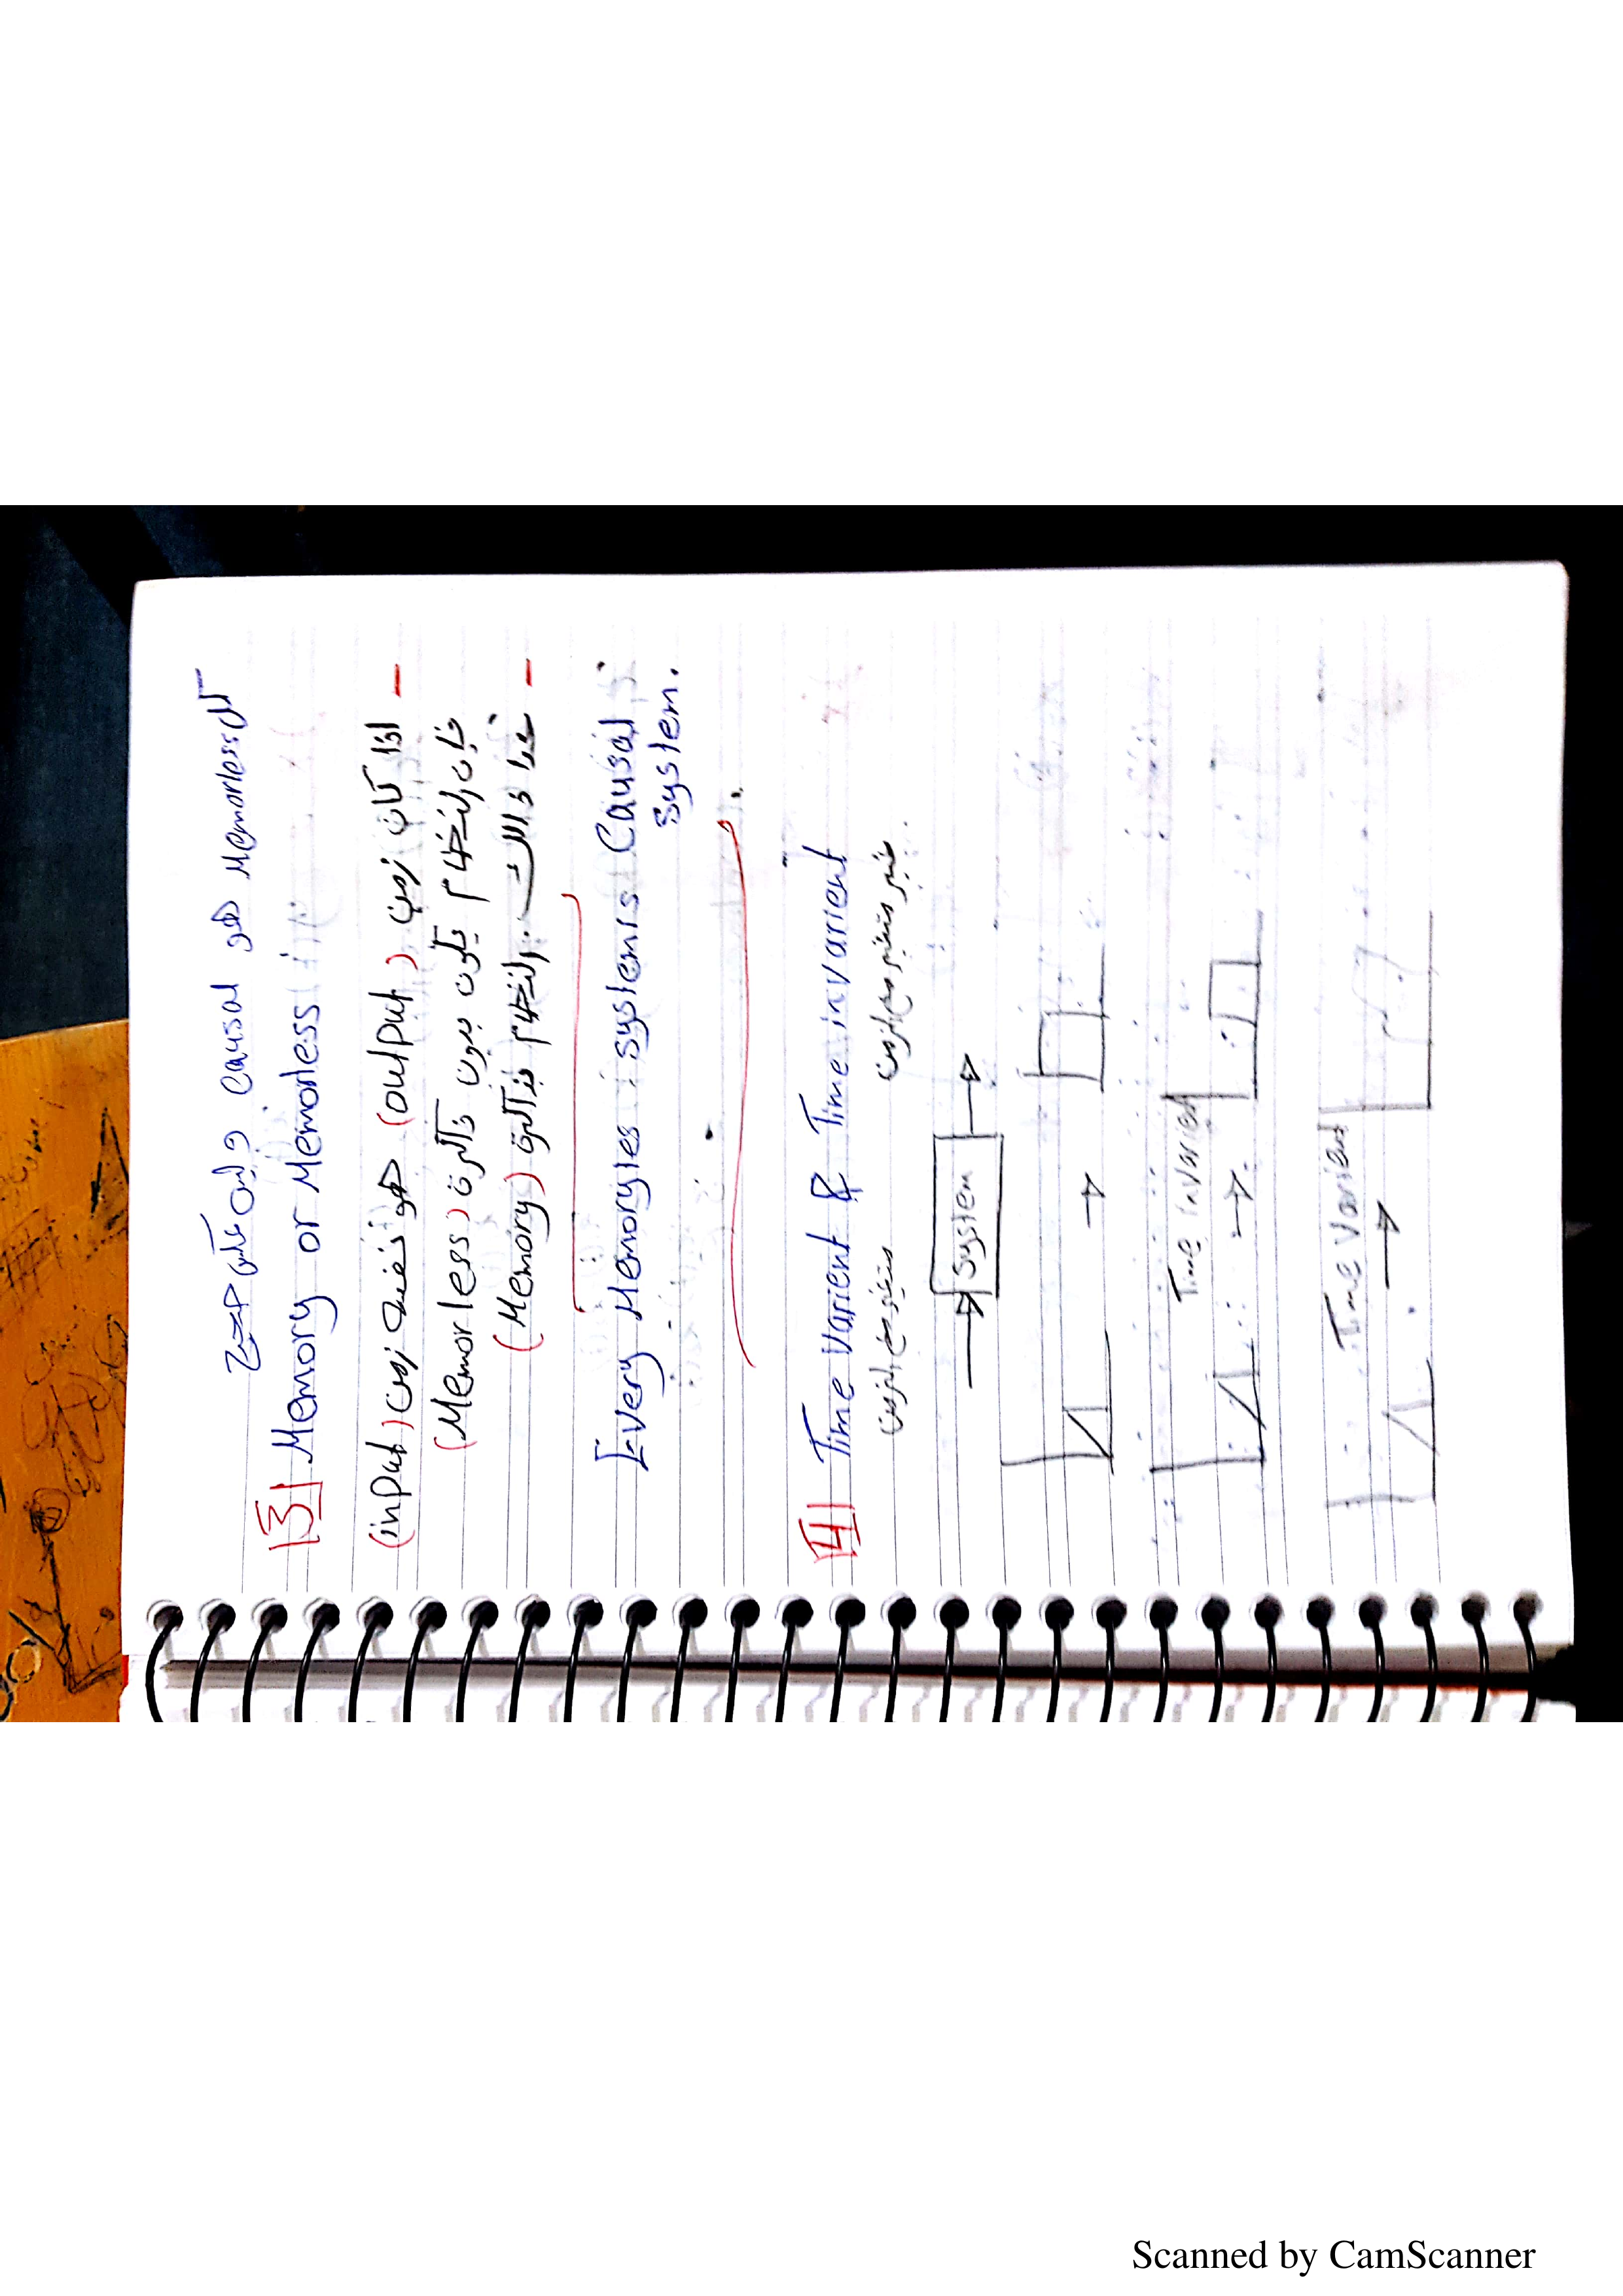 كل memorless هو causal وليس العكس صحيح
[3] Memory or Memorless
- اذا كان زمن (output) هو نفسه زمن (input)
فإن النظام يكون بدون ذاكرة (Memorless)
- عدا ذالك . النظام بذاكرة (Memory)
Every Memoryles systemis Causal
system.
[4] Time varient & Time invarient
متغير مع الزمن غير متغير مع الزمن
System
Time invarient
Time varient
Scanned by CamScanner